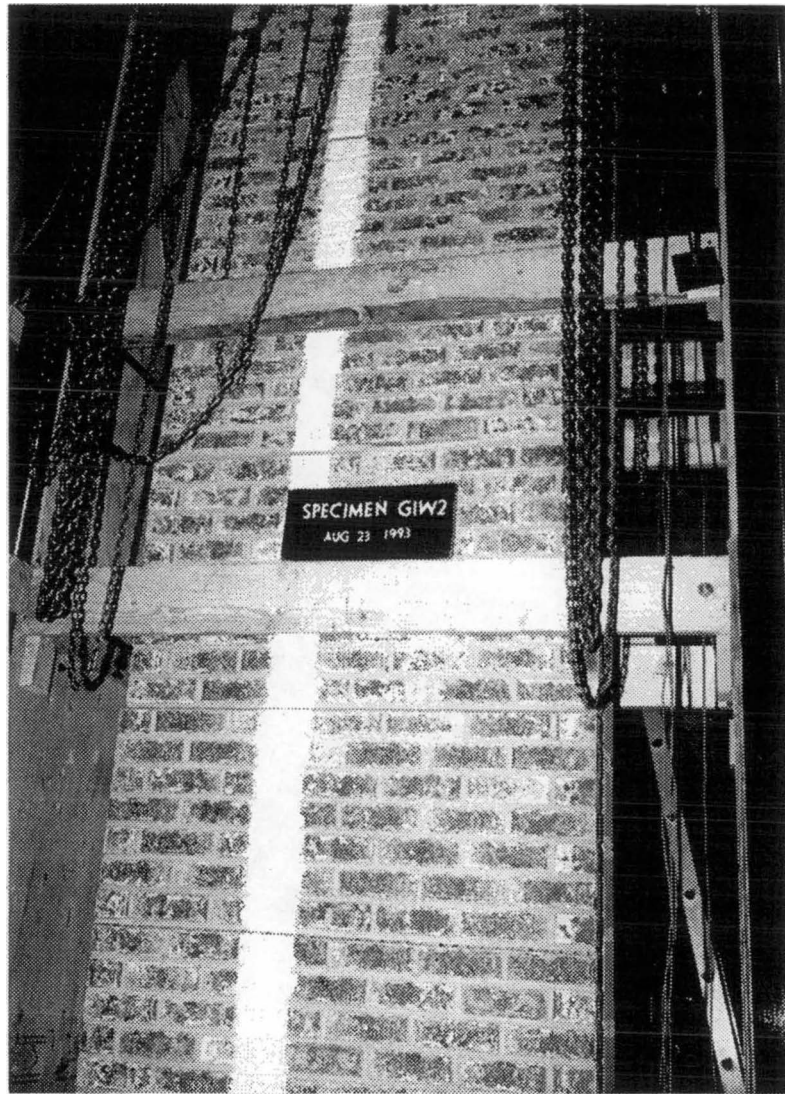 SPECIMEN GIW2
AUG 23 1993